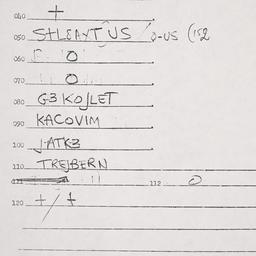 040 +
050 /0-US (152
060 0
070 0
080 G3 KOJLET
090 KACOVIM
100 J-ATK3
110 TREJBERN
111 112 0
120 +/+